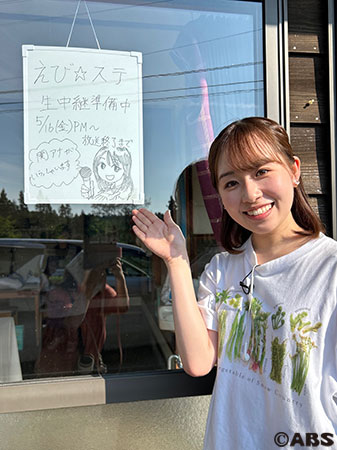 えび☆ステ
生中継準備中
5/16(金)PM〜
放送終了まで
関アナが
いらっしゃいます
Vegetable of Snow Country
©ABS